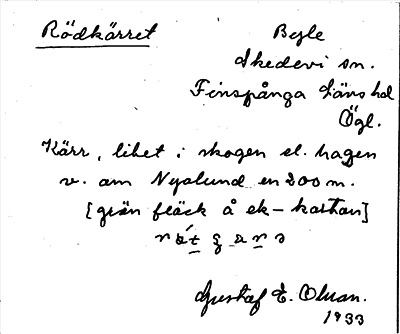 Rödkärret Begle
Skedevi sn.
Finspånga läns hd
Ögl.
Kärr, litet i skogen el. hagen
v. om Nyalund en 200 m.
[grön fläck å ek-kartan]
Gustaf E. Olsson.
1933